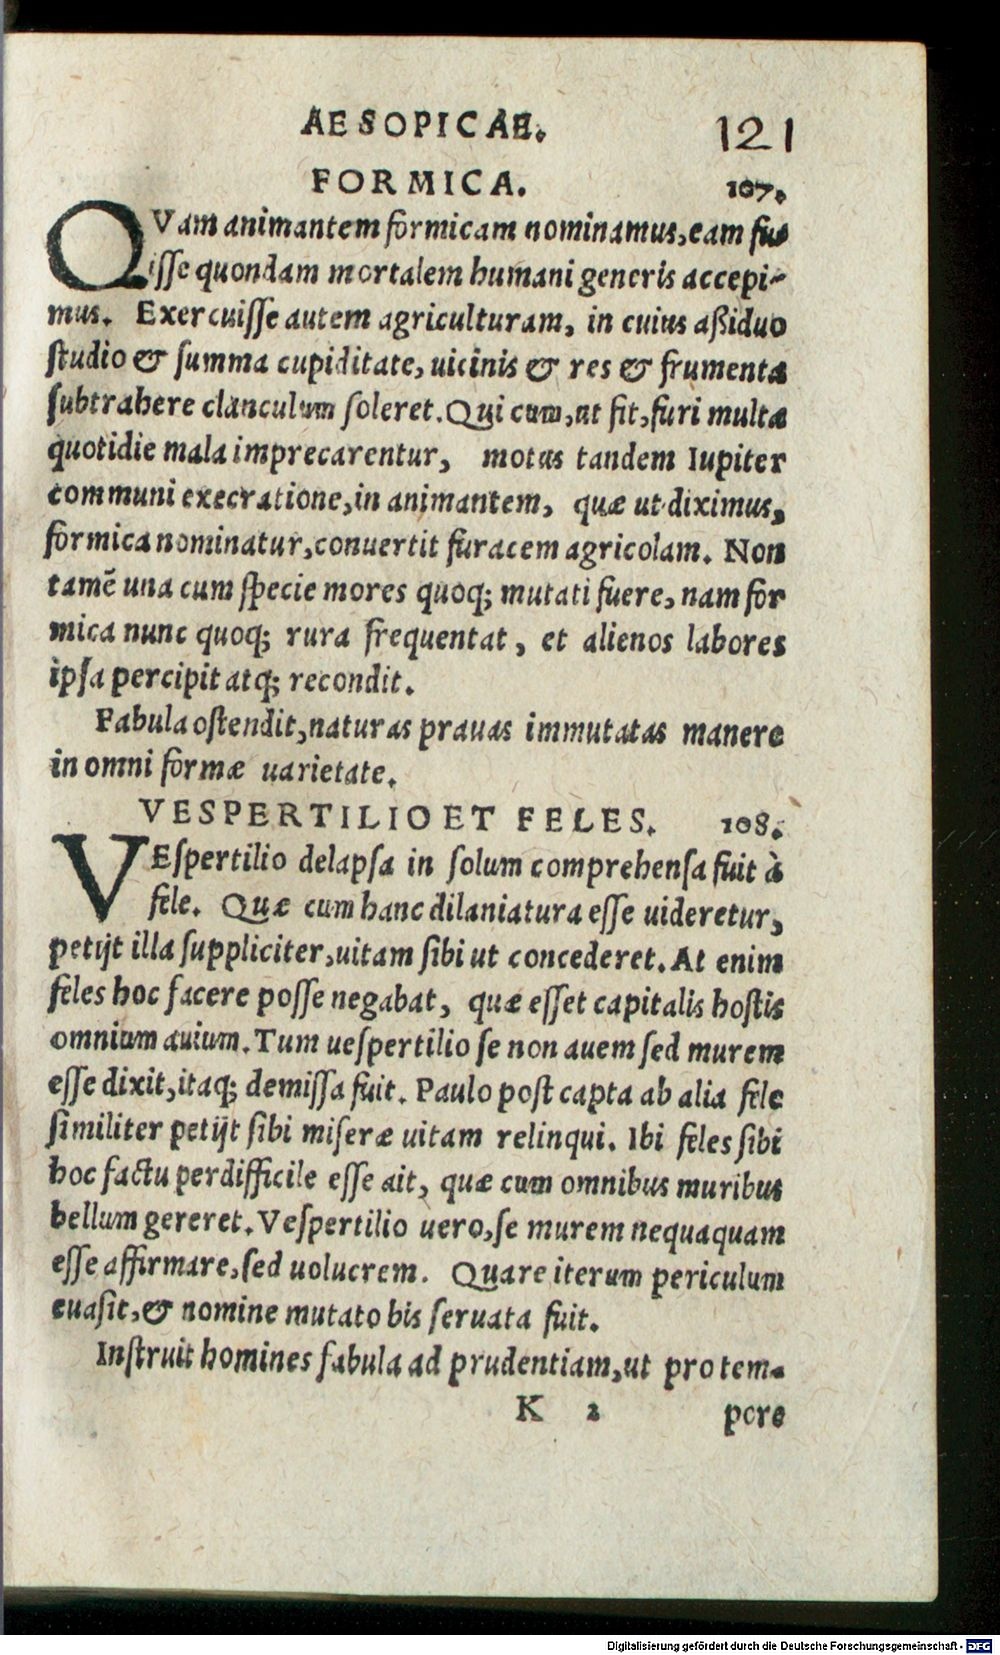 AESOPICAE. 121
FORMICA. 107.
QVam animantem formicam nominamus, eam fu-
isse quondam mortalem humani generis accepi-
mus. Exercuisse autem agriculturam, in cuius aßiduo
studio & summa cupiditate, uicinis & res & frumenta
subtrahere clanculum soleret. Qui cum, ut fit, furi multa
quotidie mala imprecarentur, motus tandem Iupiter
communi execratione, in animantem, quæ ut diximus,
formica nominatur, conuertit furacem agricolam. Non
tamē una cum specie mores quoq; mutati fuere, nam for
mica nunc quoq; rura frequentat, et alienos labores
ipsa percipit atq; recondit.
Fabula ostendit, naturas prauas immutatas manere
in omni formæ uarietate.
VESPERTILIO ET FELES. 108.
VEspertilio delapsa in solum comprehensa fuit à
fele. Quæ cum hanc dilaniatura esse uideretur,
petijt illa suppliciter, uitam sibi ut concederet. At enim
feles hoc facere posse negabat, quæ esset capitalis hostis
omnium auium. Tum uespertilio se non auem sed murem
esse dixit, itaq; demissa fuit. Paulo post capta ab alia fele
similiter petijt sibi miseræ uitam relinqui. Ibi feles sibi
hoc factu perdifficile esse ait, quæ cum omnibus muribus
bellum gereret. Vespertilio uero, se murem nequaquam
esse affirmare, sed uolucrem. Quare iterum periculum
euasit, & nomine mutato bis seruata fuit.
Instruit homines fabula ad prudentiam, ut pro tem-
K 2 pore
Digitalisierung gefördert durch die Deutsche Forschungsgemeinschaft - DFG